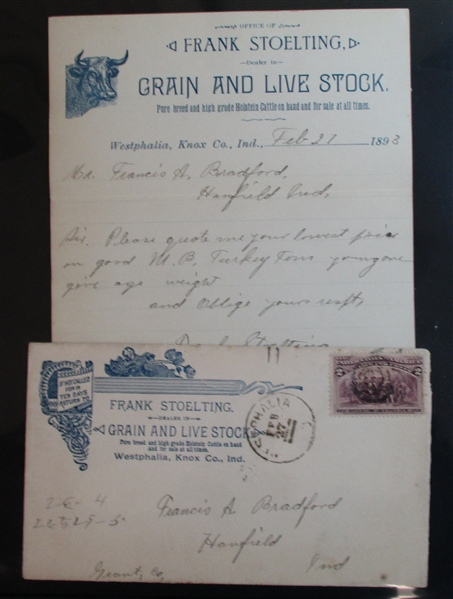 OFFICE OF
FRANK STOELTING,
Dealer in
GRAIN AND LIVE STOCK.
Pure breed and high grade Holstein Cattle on hand and for sale at all times.
Westphalia, Knox Co., Ind., Feb 27 1893
Mr. Francis A. Bradford,
Hanfield Ind,
Sir. Please quote me your lowest price
on good M. B. Turkey Toms young one
give age weight
and oblige yours respt,
IF NOT CALLED
FOR IN
TEN DAYS
RETURN TO
FRANK STOELTING.
DEALER IN
GRAIN AND LIVE STOCK
Pure breed and high grade Holstein Cattle on hand
and for sale at all times.
Westphalia, Knox Co., Ind.
WESTPHALIA
FEB
27
IND.
Francis A Bradford
Hanfield
Ind
Grant, Co